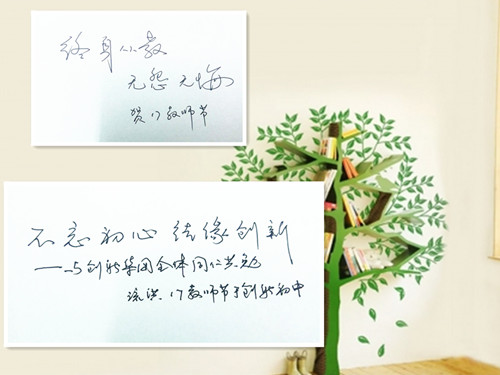 终身从教
无怨无悔
贺17教师节
不忘初心 结缘创新
——与创新集团全体同仁共勉
17教师节于创新初中